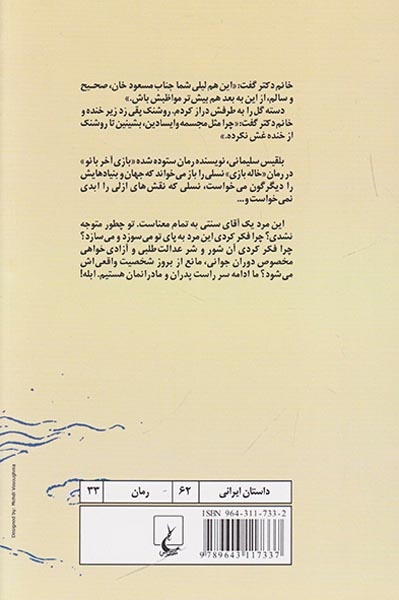 خانم دکتر گفت: «این هم لیلی شما جناب مسعود خان، صحیح
و سالم، از این به بعد هم بیش تر مواظبش باش.»
دسته گل را به طرفش دراز کردم. روشنک پقی زد زیر خنده و
خانم دکتر گفت: «چرا مثل مجسمه وایسادین، بشینین تا روشنک
از خنده غش نکرده.»
بلقیس سلیمانی، نویسنده رمان ستوده شده «بازی آخر بانو»
در رمان «خاله بازی» نسلی را باز می‌خواند که جهان و بنیادهایش
را دیگرگون می‌خواست، نسلی که نقش‌های ازلی را ابدی
نمی‌خواست و...
این مرد یک آقای سنتی به تمام معناست. تو چطور متوجه
نشدی؟ چرا فکر کردی این مرد به پای تو می‌سوزد و می‌سازد؟
چرا فکر کردی آن شور و شر عدالت طلبی و آزادی خواهی
مخصوص دوران جوانی، مانع از بروز شخصیت واقعی‌اش
می‌شود؟ ما ادامه سر راست پدران و مادرانمان هستیم. ابله!
داستان ایرانی ۶۲ رمان ۳۳
ISBN 964-311-733-2
9 789643 117337
Designed by: Mehdi Vosoughnia